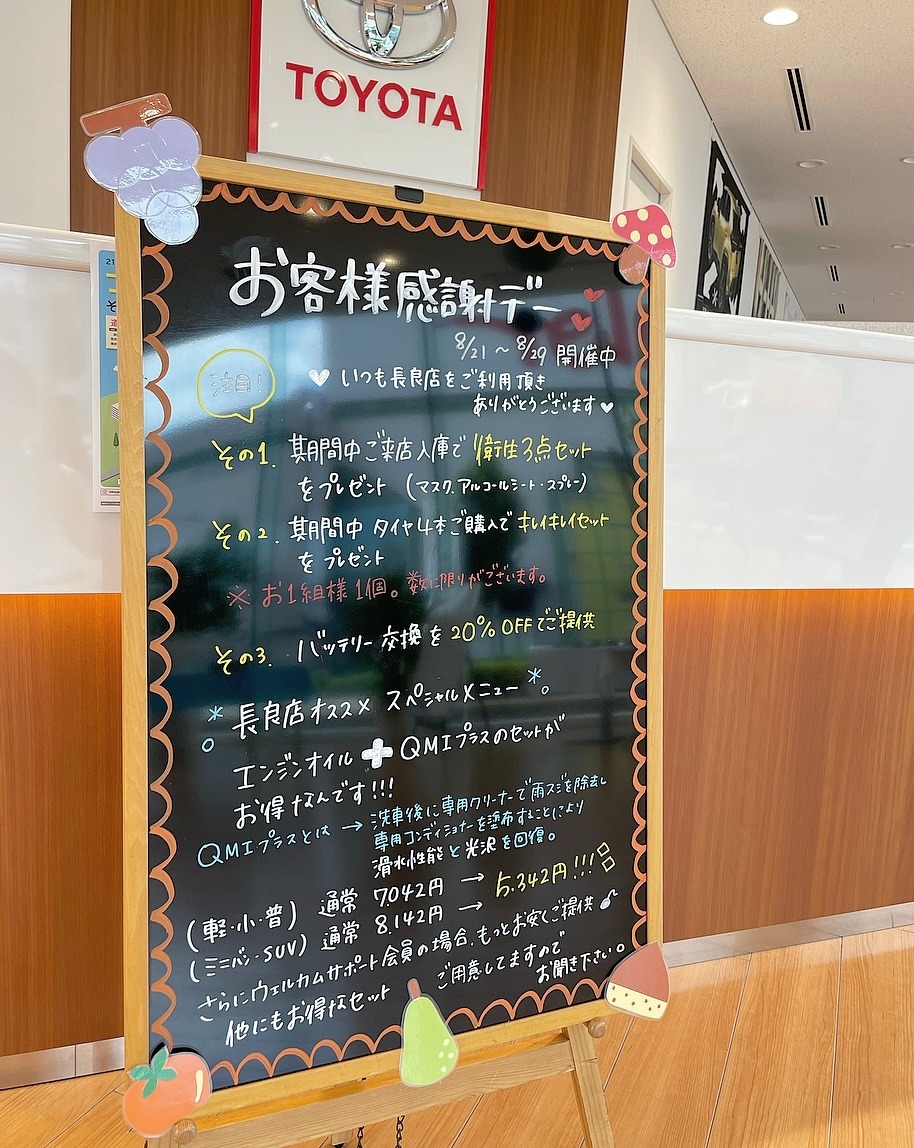 TOYOTA
お客様感謝デー
8/21 ~ 8/29 開催中
注目!
いつも長良店をご利用頂き
ありがとうございます
その1. 期間中ご来店入庫で 衛生3点セット
をプレゼント (マスク、アルコールシート・スプレー)
その2. 期間中 タイヤ4本ご購入で キレイキレイセット
を プレゼント
※ お1組様1個。数に限りがございます。
その3. バッテリー 交換を 20% OFFでご提供
長良店オススメ スペシャルメニュー
エンジンオイル + QMIプラスのセットが
お得なんです!!!
QMIプラスとは → 洗車後に専用クリーナーで雨スジを除去し
専用コンディショナーを塗布することにより
滑水性能と光沢を回復。
(軽・小・普) 通常 7.042円 → 5.342円!!!
(ミニバン・SUV) 通常 8.142円 →
さらにウェルカムサポート会員の場合、もっとお安くご提供
他にもお得なセット ご用意してますので
お聞き下さい。